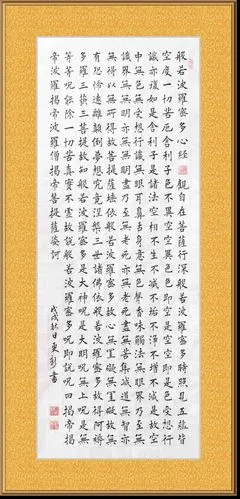 般若波羅蜜多心經 觀自在菩薩行深般若波羅蜜多時照見五蘊皆
空度一切苦厄舍利子色不異空空不異色色即是空空即是色受想行
識亦復如是舍利子是諸法空相不生不滅不垢不淨不增不減是故空
中無色無受想行識無眼耳鼻舌身意無色聲香味觸法無眼界乃至無意
識界無無明亦無無明盡乃至無老死亦無老死盡無苦集滅道無智亦
無得以無所得故菩提薩埵依般若波羅蜜多故心無罣礙無罣礙故無
有恐怖遠離顛倒夢想究竟涅槃三世諸佛依般若波羅蜜多故得阿耨
多羅三藐三菩提故知般若波羅蜜多是大神咒是大明咒是無上咒是無
等等咒能除一切苦真實不虛故說般若波羅蜜多咒即說咒曰揭帝揭
帝波羅揭帝波羅僧揭帝菩提薩婆訶
戊戌秋日書